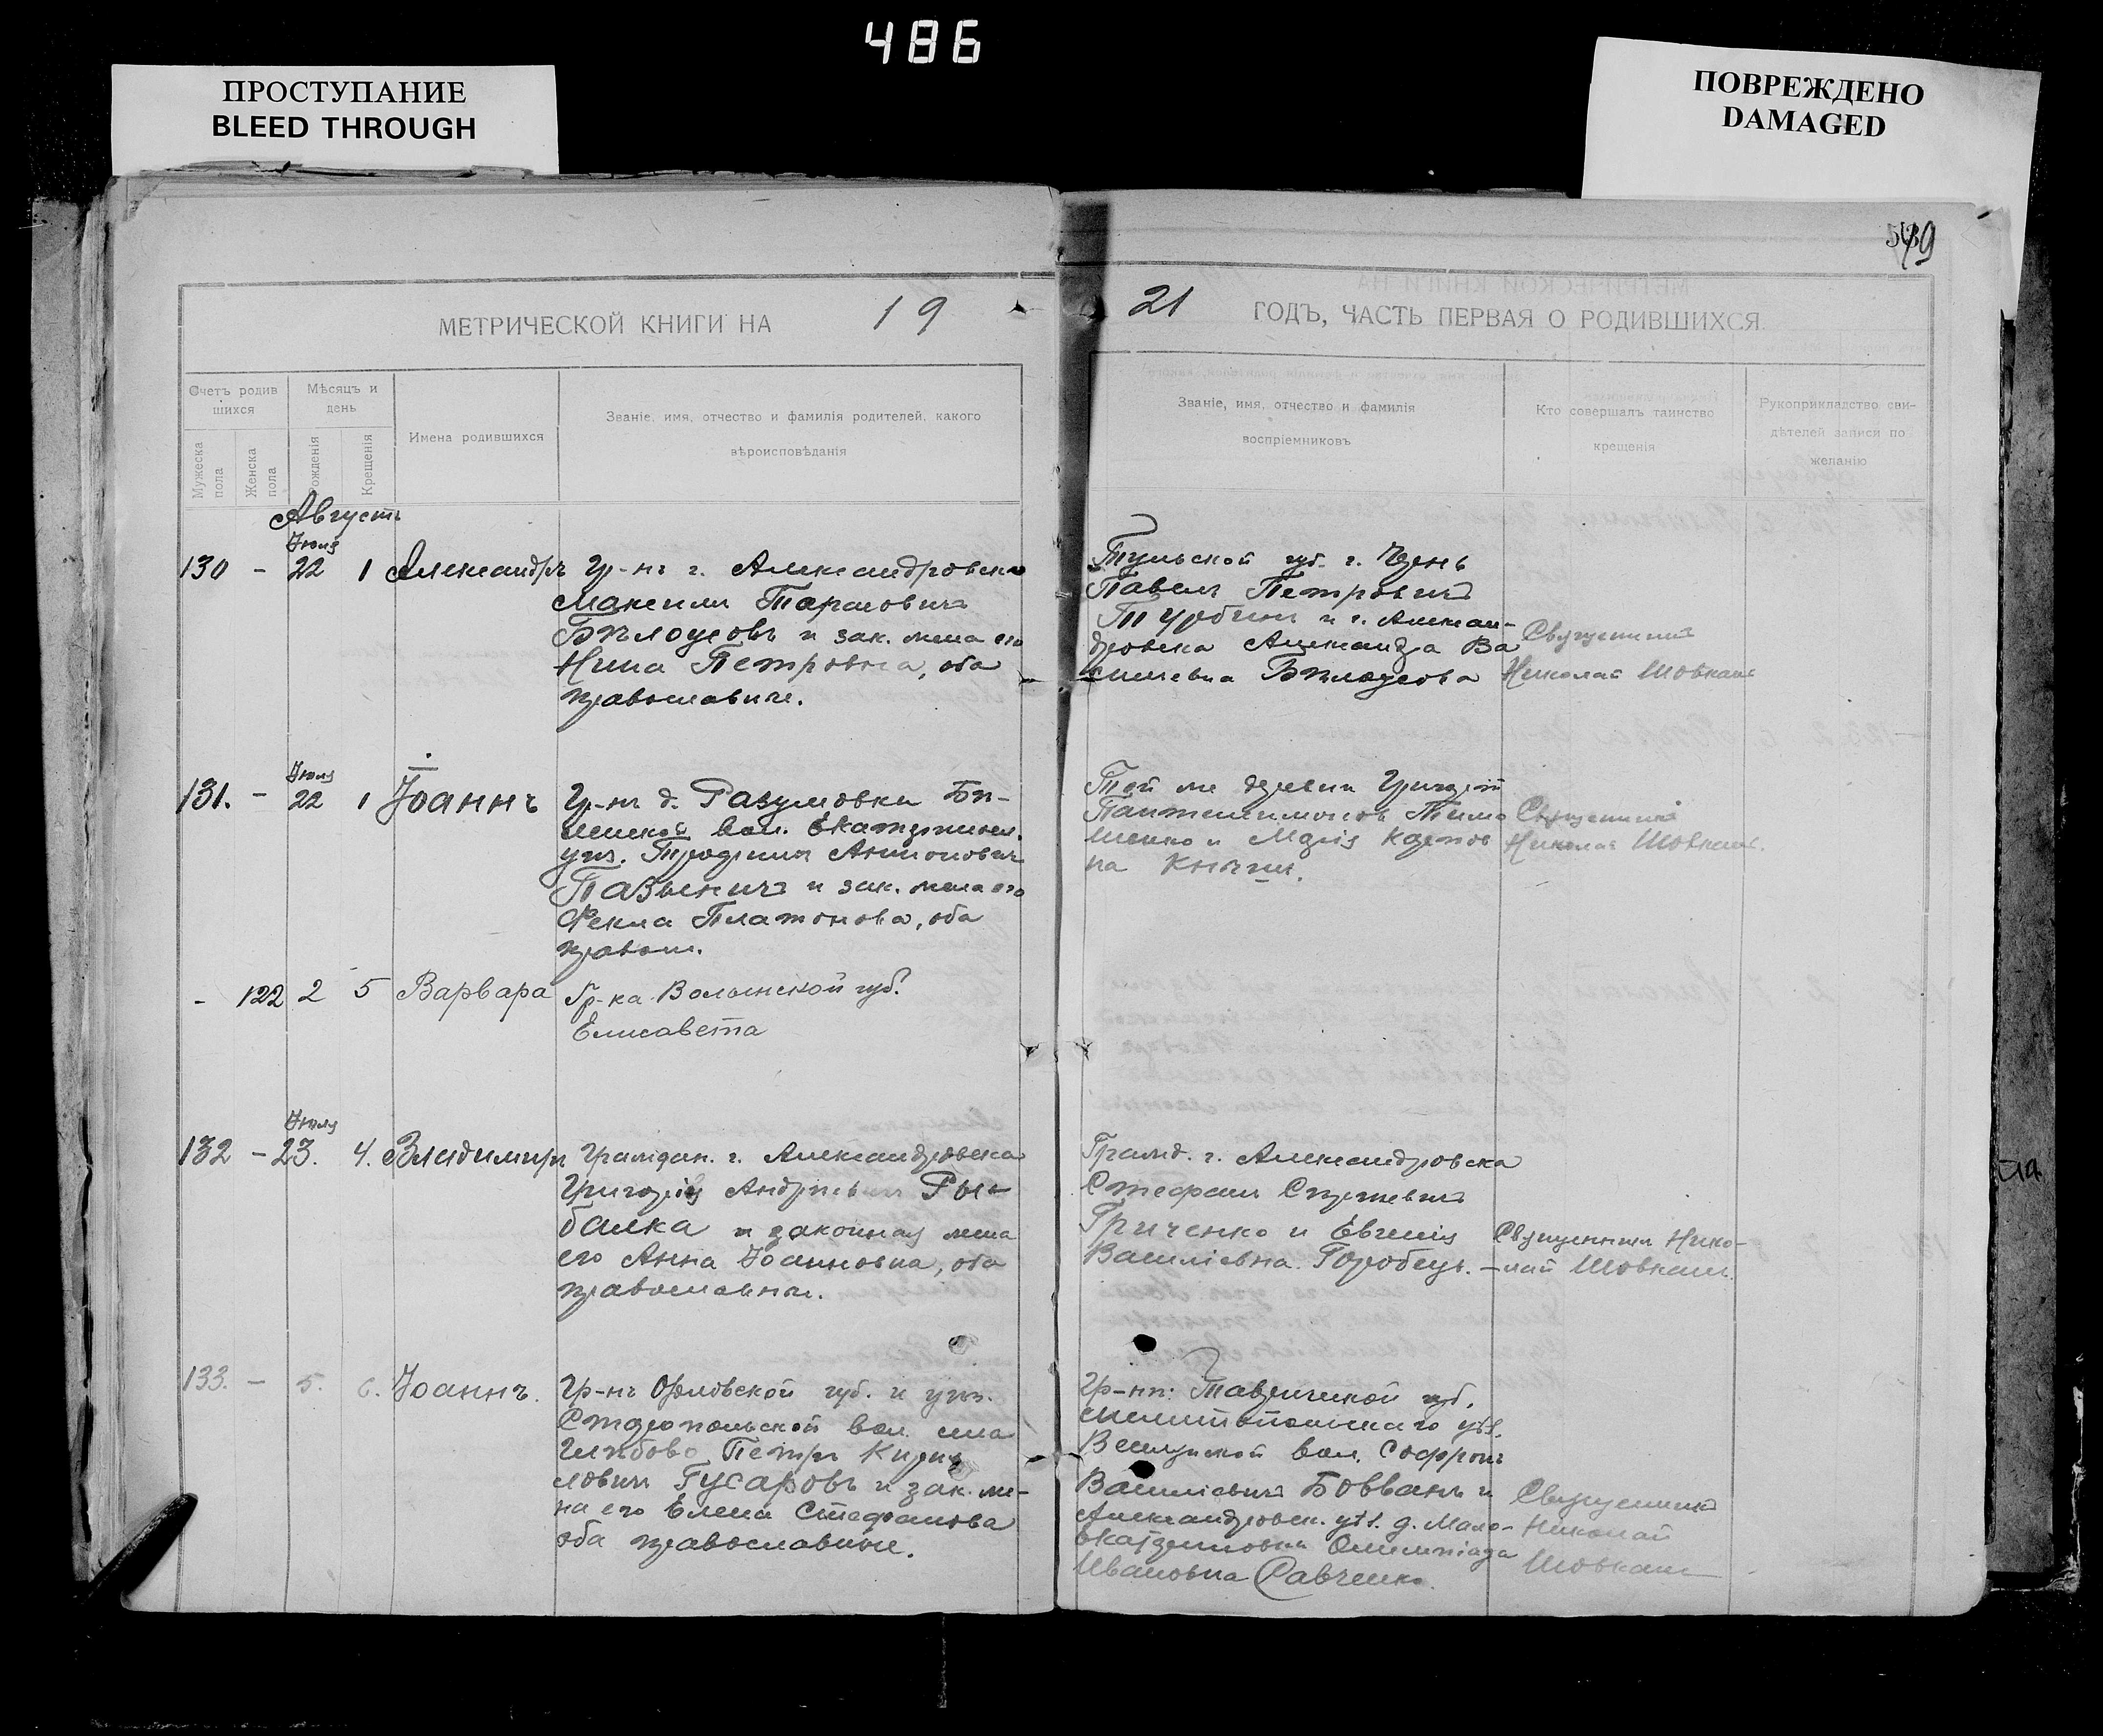 486
ПРОСТУПАНИЕ
BLEED THROUGH
ПОВРЕЖДЕНО
DAMAGED
МЕТРИЧЕСКОЙ КНИГИ НА 19
21 ГОДЪ, ЧАСТЬ ПЕРВАЯ О РОДИВШИХСЯ.
Счетъ родив
шихся
Мужеска
пола
Женска
пола
Мѣсяцъ и
день
Рожденія
Крещенія
Имена родившихся
Званіе, имя, отчество и фамилія родителей, какого
вѣроисповѣданія
Званіе, имя, отчество и фамилія
воспріемниковъ
Кто совершалъ таинство
крещенія
Рукоприкладство сви-
дѣтелей записи по
желанію
Августъ
Іюля
130 - 22 1 Александръ
Гр-нъ г. Александровска
Максимъ Тарасовичъ
Бѣлоусовъ и зак. жена его
Нина Петровна, оба
православные.
Тульской губ. г.
Павелъ Петровичъ
и г. Алексан-
дровска Александра Ва
сильевна Бѣлоусова
Священникъ
Николай Шовкань
Іюля
131. - 22 1 Іоаннъ
Гр-нъ д. Разумовки Бѣ-
ленской вол. Екатеринос.
уѣз. Антоновичъ
и зак. жена его
Фекла Платонова, оба
правосл.
Той же деревни Григорій
Пантелимоновъ Тимо
шенко и Марія Карпов
на
Священникъ
Николай Шовкань.
- 122 2 5 Варвара
Гр-ка Волынской губ.
Елисавета
Іюля
132 - 23. 4. Владимиръ
Граждан. г. Александровска
Григорій Андреевичъ Ры-
балка и законная жена
его Анна Іоанновна, оба
православные.
Гражд. г. Александровска
Стефанъ Сергеевичъ
Гриченко и Евгенія
Василіевна Горобець.
Священникъ Нико-
лай Шовкань.
133. - 5. 6. Іоаннъ.
Гр-нъ Орловской губ. и уѣз.
вол. села
Глѣбово Петръ Кирил
ловичъ Гусаровъ и зак. же-
на его Елена Стефанова
оба православные.
Гр-нъ: Таврической губ.
Мелитопольскаго уѣз.
вол. Софронъ
Василіевичъ Бовванъ и
Александровск. уѣз. д. Мало-
Екатериновки Олимпіада
Ивановна Савченко.
Священникъ
Николай
Шовкань